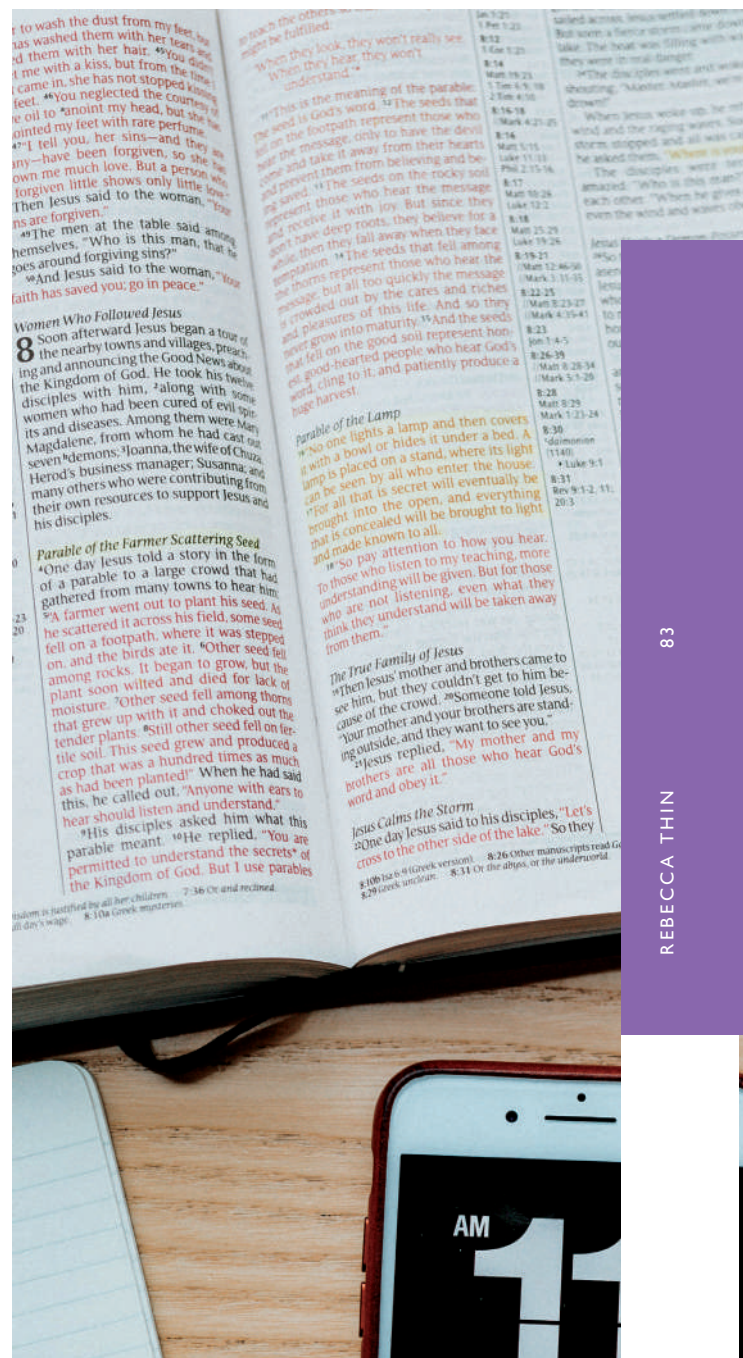 r to wash the dust from my feet, but
has washed them with her tears and
ed them with her hair. 45You didn't
t me with a kiss, but from the time I
came in, she has not stopped kissing
feet. 46You neglected the courtesy of
e oil to *anoint my head, but she has
ointed my feet with rare perfume.
47"I tell you, her sins—and they are
any—have been forgiven, so she has
own me much love. But a person who
forgiven little shows only little love."
Then Jesus said to the woman, "Your
ns are forgiven."
49The men at the table said among
hemselves, "Who is this man, that he
goes around forgiving sins?"
50And Jesus said to the woman, "Your
faith has saved you; go in peace."
Women Who Followed Jesus
8 Soon afterward Jesus began a tour of
the nearby towns and villages, preach-
ing and announcing the Good News about
the Kingdom of God. He took his twelve
disciples with him, 2along with some
women who had been cured of evil spir-
its and diseases. Among them were Mary
Magdalene, from whom he had cast out
seven demons; 3Joanna, the wife of Chuza,
Herod's business manager; Susanna; and
many others who were contributing from
their own resources to support Jesus and
his disciples.
Parable of the Farmer Scattering Seed
4One day Jesus told a story in the form
of a parable to a large crowd that had
gathered from many towns to hear him:
5"A farmer went out to plant his seed. As
he scattered it across his field, some seed
fell on a footpath, where it was stepped
on, and the birds ate it. 6Other seed fell
among rocks. It began to grow, but the
plant soon wilted and died for lack of
moisture. 7Other seed fell among thorns
that grew up with it and choked out the
tender plants. 8Still other seed fell on fer-
tile soil. This seed grew and produced a
crop that was a hundred times as much
as had been planted!" When he had said
this, he called out, "Anyone with ears to
hear should listen and understand."
9His disciples asked him what this
parable meant. 10He replied, "You are
permitted to understand the secrets* of
the Kingdom of God. But I use parables
isdom is justified by all her children. 7:36 Or and reclined.
ull day's wage. 8:10a Greek mysteries.
23
20
to teach the others so
might be fulfilled:
'When they look, they won't really see.
When they hear, they won't
understand.'*
11"This is the meaning of the parable:
The seed is God's word. 12The seeds that
fell on the footpath represent those who
hear the message, only to have the devil
come and take it away from their hearts
and prevent them from believing and be-
ing saved. 13The seeds on the rocky soil
represent those who hear the message
and receive it with joy. But since they
don't have deep roots, they believe for a
while, then they fall away when they face
temptation. 14The seeds that fell among
the thorns represent those who hear the
message, but all too quickly the message
is crowded out by the cares and riches
and pleasures of this life. And so they
never grow into maturity. 15And the seeds
that fell on the good soil represent hon-
est, good-hearted people who hear God's
word, cling to it, and patiently produce a
huge harvest.
Parable of the Lamp
16"No one lights a lamp and then covers
it with a bowl or hides it under a bed. A
lamp is placed on a stand, where its light
can be seen by all who enter the house.
17For all that is secret will eventually be
brought into the open, and everything
that is concealed will be brought to light
and made known to all.
18"So pay attention to how you hear.
To those who listen to my teaching, more
understanding will be given. But for those
who are not listening, even what they
think they understand will be taken away
from them."
The True Family of Jesus
19Then Jesus' mother and brothers came to
see him, but they couldn't get to him be-
cause of the crowd. 20Someone told Jesus,
"Your mother and your brothers are stand-
ing outside, and they want to see you."
21Jesus replied, "My mother and my
brothers are all those who hear God's
word and obey it."
Jesus Calms the Storm
22One day Jesus said to his disciples, "Let's
cross to the other side of the lake." So they
8:10b Isa 6:9 (Greek version). 8:26 Other manuscripts read Ge
8:29 Greek unclear. 8:31 Or the abyss, or the underworld.
1 Pet 1:23
8:12
1 Cor 1:21
8:14
Matt 19:23
1 Tim 6:9, 10
2 Tim 4:10
8:16-18
//Mark 4:21-25
8:16
Matt 5:15
Luke 11:33
Phil 2:15-16
8:17
Matt 10:26
Luke 12:2
8:18
Matt 25:29
Luke 19:26
8:19-21
//Matt 12:46-50
//Mark 3:31-35
8:22-25
//Matt 8:23-27
//Mark 4:35-41
8:23
Jon 1:4-5
8:26-39
//Matt 8:28-34
//Mark 5:1-20
8:28
Matt 8:29
Mark 1:23-24
8:30
daimonion
(1140)
Luke 9:1
8:31
Rev 9:1-2, 11;
20:3
sailed across, Jesus settled down
But soon a fierce storm came down
lake. The boat was filling with wa
they were in real danger.
24The disciples went and woke
shouting, "Master, Master, we're
drown!"
When Jesus woke up, he
wind and the raging waves. Su
storm stopped and all was ca
he asked them, "Where is your
The disciples were
amazed. "Who is this man?"
each other. "When he gives
even the wind and waves obe
83
REBECCA THIN
AM
11